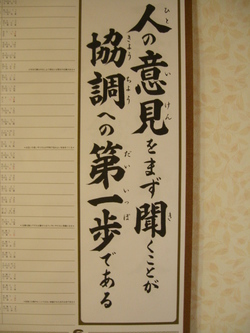 人の意見をまず聞くことが
協調への第一歩である